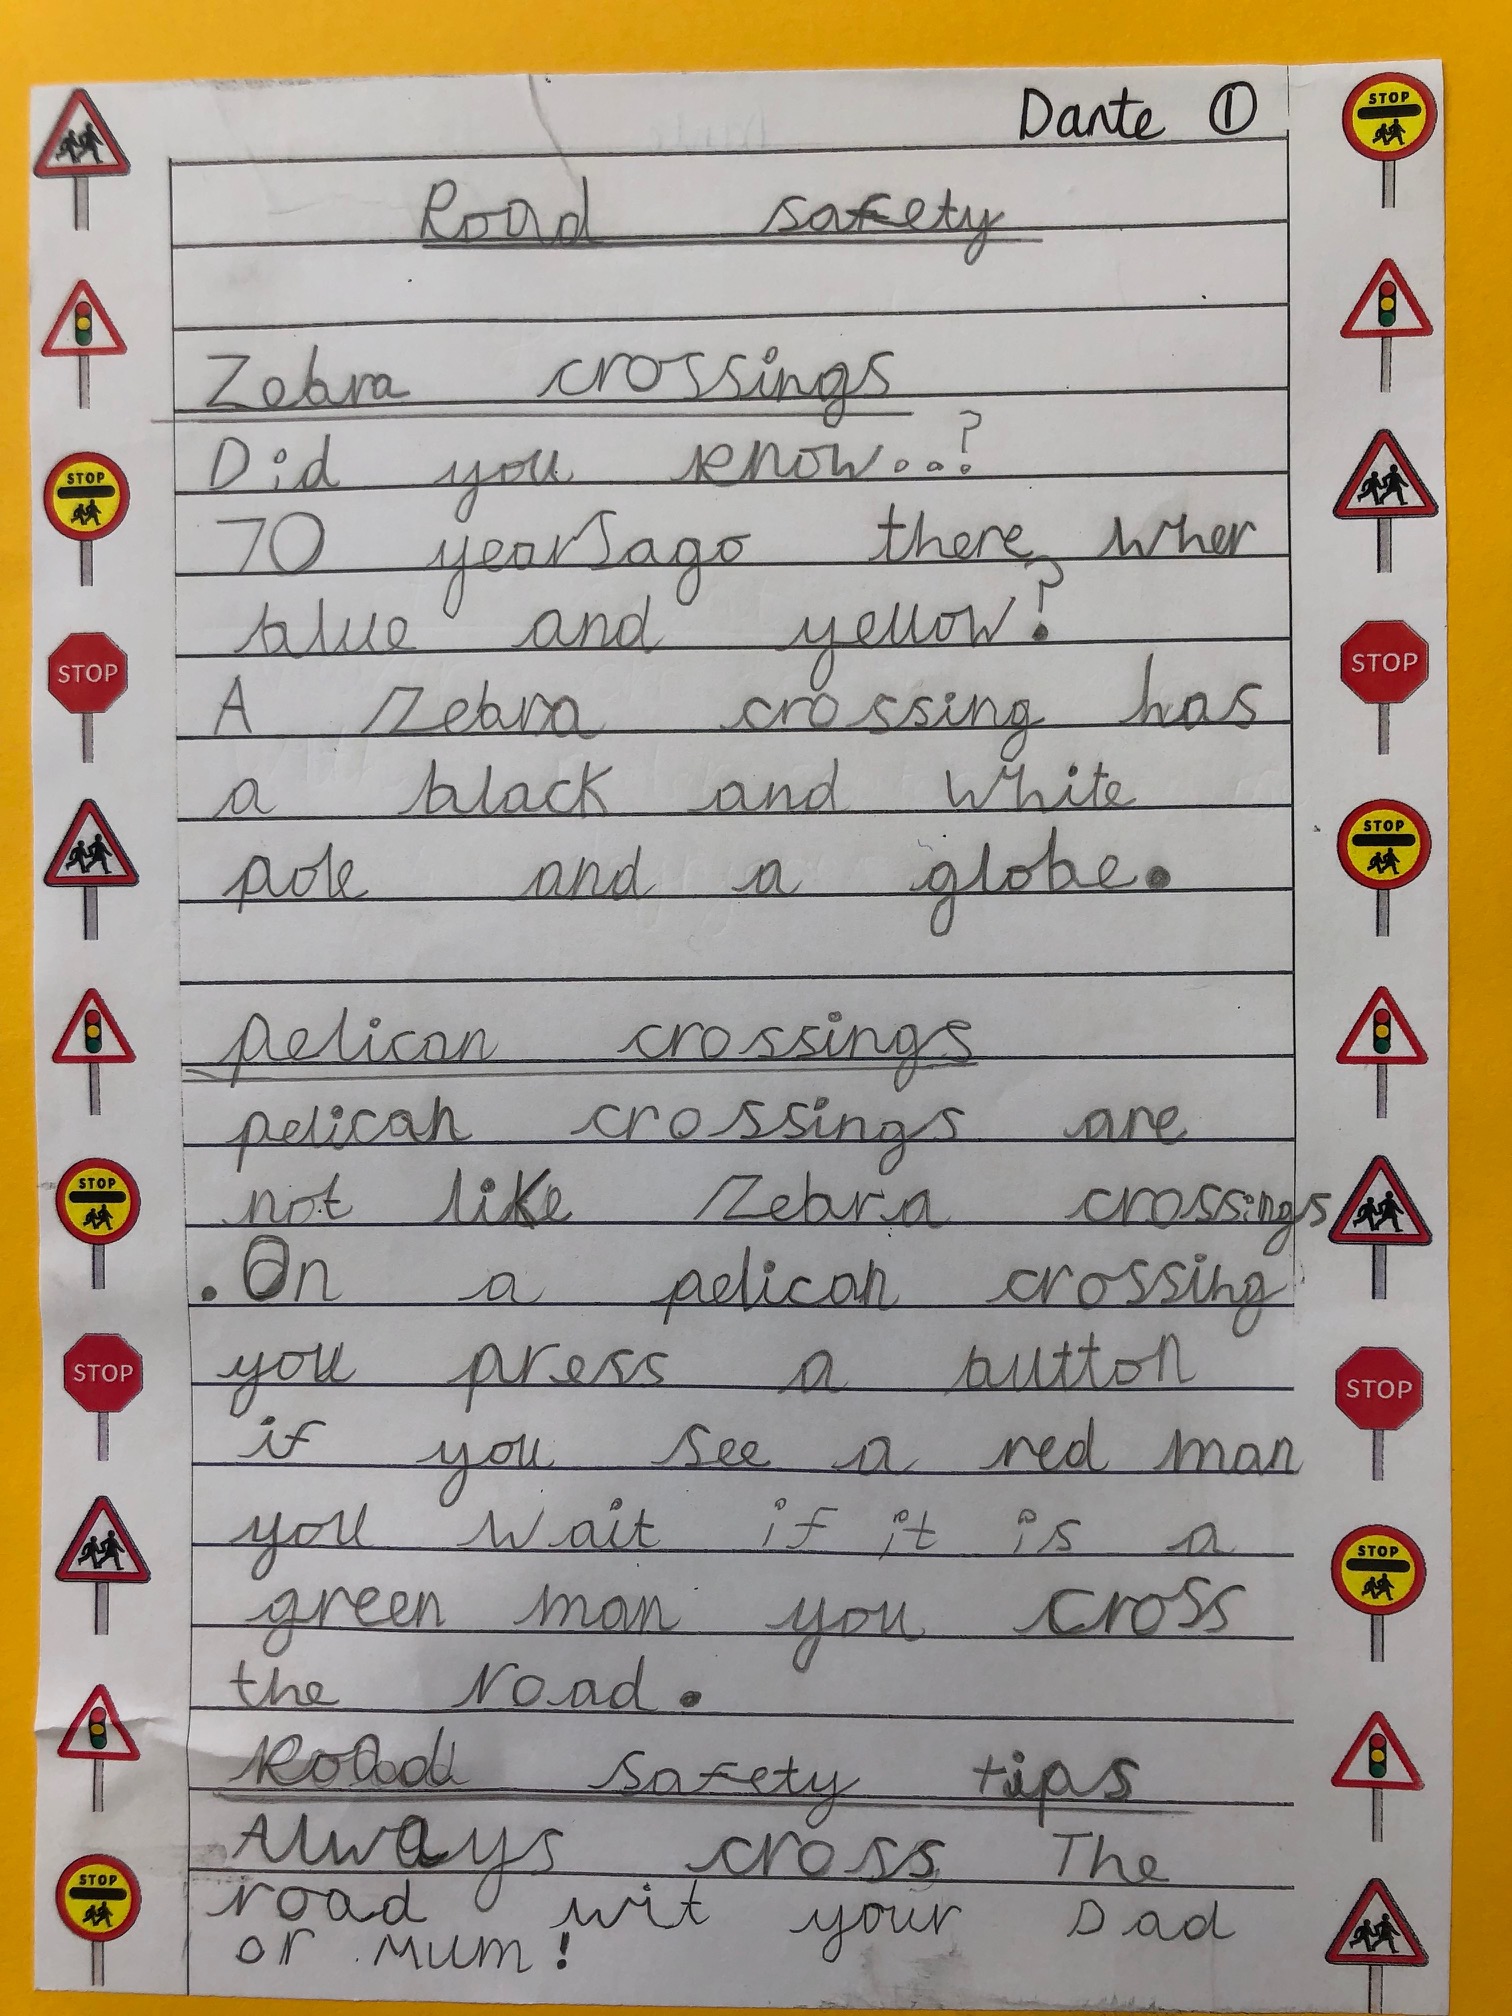 Dante ①
Road safety
Zebra crossings
Did you know...?
70 years ago there wher
blue and yellow?
A Zebra crossing has
a black and white
pole and a globe.
pelican crossings
pelican crossings are
not like Zebra crossings
. On a pelican crossing
you press a button
if you see a red man
you wait if it is a
green man you cross
the road.
Road safety tips
Always cross The
road wit your Dad
or Mum!
STOP
STOP
STOP
STOP
STOP
STOP
STOP
STOP
STOP